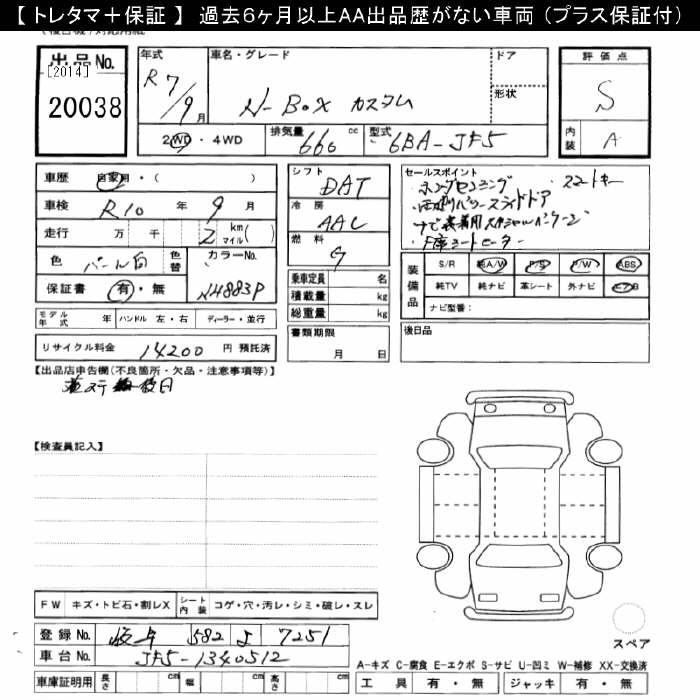 【 トレタマ＋保証 】 過去６ヶ月以上ＡＡ出品歴がない車両（プラス保証付）
出品No.
[2014]
20038
年式
R7/9月
車名・グレード
N-BOX カスタム
ドア
形状
2WD・4WD
排気量 660 cc
型式 6BA-JF5
評価点
S
内装 A
車歴 自家用・( )
車検 R10 年 9 月
走行 万 千 2 km マイル( )
色 パール白 色替
カラーNo.
NH883P
保証書 有・無
シフト
DAT
冷房
AAC
燃料
G
乗車定員 名
積載量 kg
総重量 kg
書類期限
月 日
セールスポイント
・ホンダセンシング ・スマートキー
・両側パワースライドドア
・ナビ装着用スペシャルパッケージ
・F席シートヒーター
装備品
S/R 純A/W P/S P/W ABS
純TV 純ナビ 革シート 外ナビ エアB
ナビ型番：
モデル年式 年 ハンドル 左・右 ディーラー・並行
後日品
リサイクル料金 14200 円 預託済
【出品店申告欄(不良箇所・欠品・注意事項等)】
【検査員記入】
FW キズ・トビ石・割レX シート内装 コゲ・穴・汚レ・シミ・破レ・スレ
登録No. 岐阜 582 よ 7251
車台No. JF5-1340512
車庫証明用 長さ cm 幅 cm 高さ cm
スペア
A-キズ C-腐食 E-エクボ S-サビ U-凹ミ W-補修 XX-交換済
工具 有・無 ジャッキ 有・無